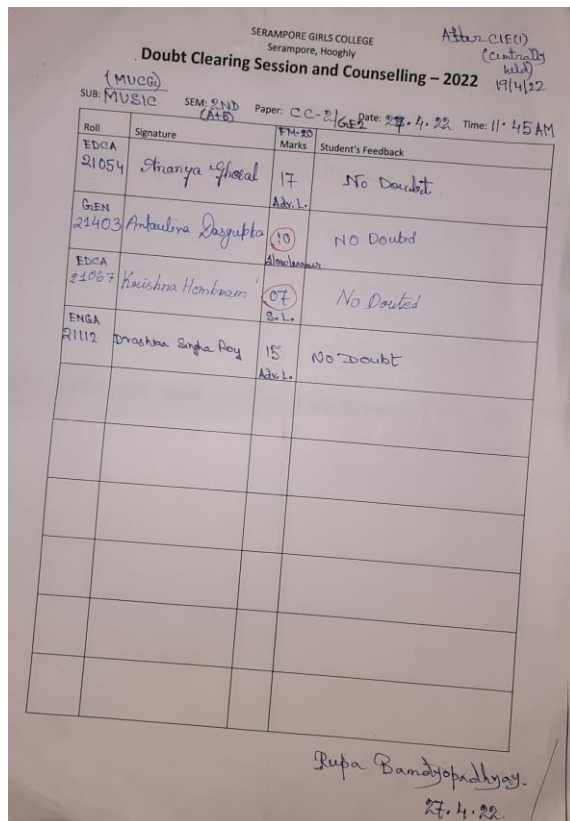 SERAMPORE GIRLS COLLEGE
Serampore, Hooghly
After CIE(1)
(centrally
held)
19/4/22
Doubt Clearing Session and Counselling – 2022
(MUCG)
SUB: MUSIC SEM: 2ND Paper: CC-2/GE2 Date: 27.4.22 Time: 11.45 AM
(A+B)
Roll Signature FM-20 Marks Student's Feedback
EDCA
21054 Ananya Ghosal 17 No Doubt
Adv. L.
GEN
21403 Antaulina Dasgupta 10 NO Doubd
Slow learner
EDCA
21067 Krishna Hembram 07 No Douted
S.L.
ENGA
21112 Singha Roy 15 No Doubt
Adv. L.
Rupa Bandyopadhyay.
27.4.22.